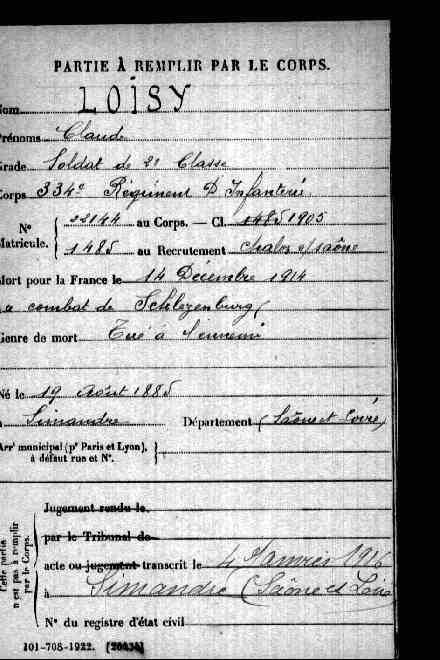 PARTIE À REMPLIR PAR LE CORPS.
Nom LOISY
Prénoms Claude
Grade Soldat de 2e Classe
Corps 334e Régiment D'Infanterie
N° Matricule. { 22144 au Corps. — Cl. 1905
1485 au Recrutement Chalon s/saône
Mort pour la France le 14 Décembre 1914
a combat de
Genre de mort Tué à l'ennemi
Né le 19 Août 1885
à Simandre Département (Saône et Loire)
Arrt municipal (pr Paris et Lyon), à défaut rue et N°. }
Cette partie n'est pas à remplir par le Corps.
Jugement rendu le
par le Tribunal de
acte ou jugement transcrit le 4 Janvier 1916
à Simandre (Saône et Loire
N° du registre d'état civil
101-708-1922. [26434]